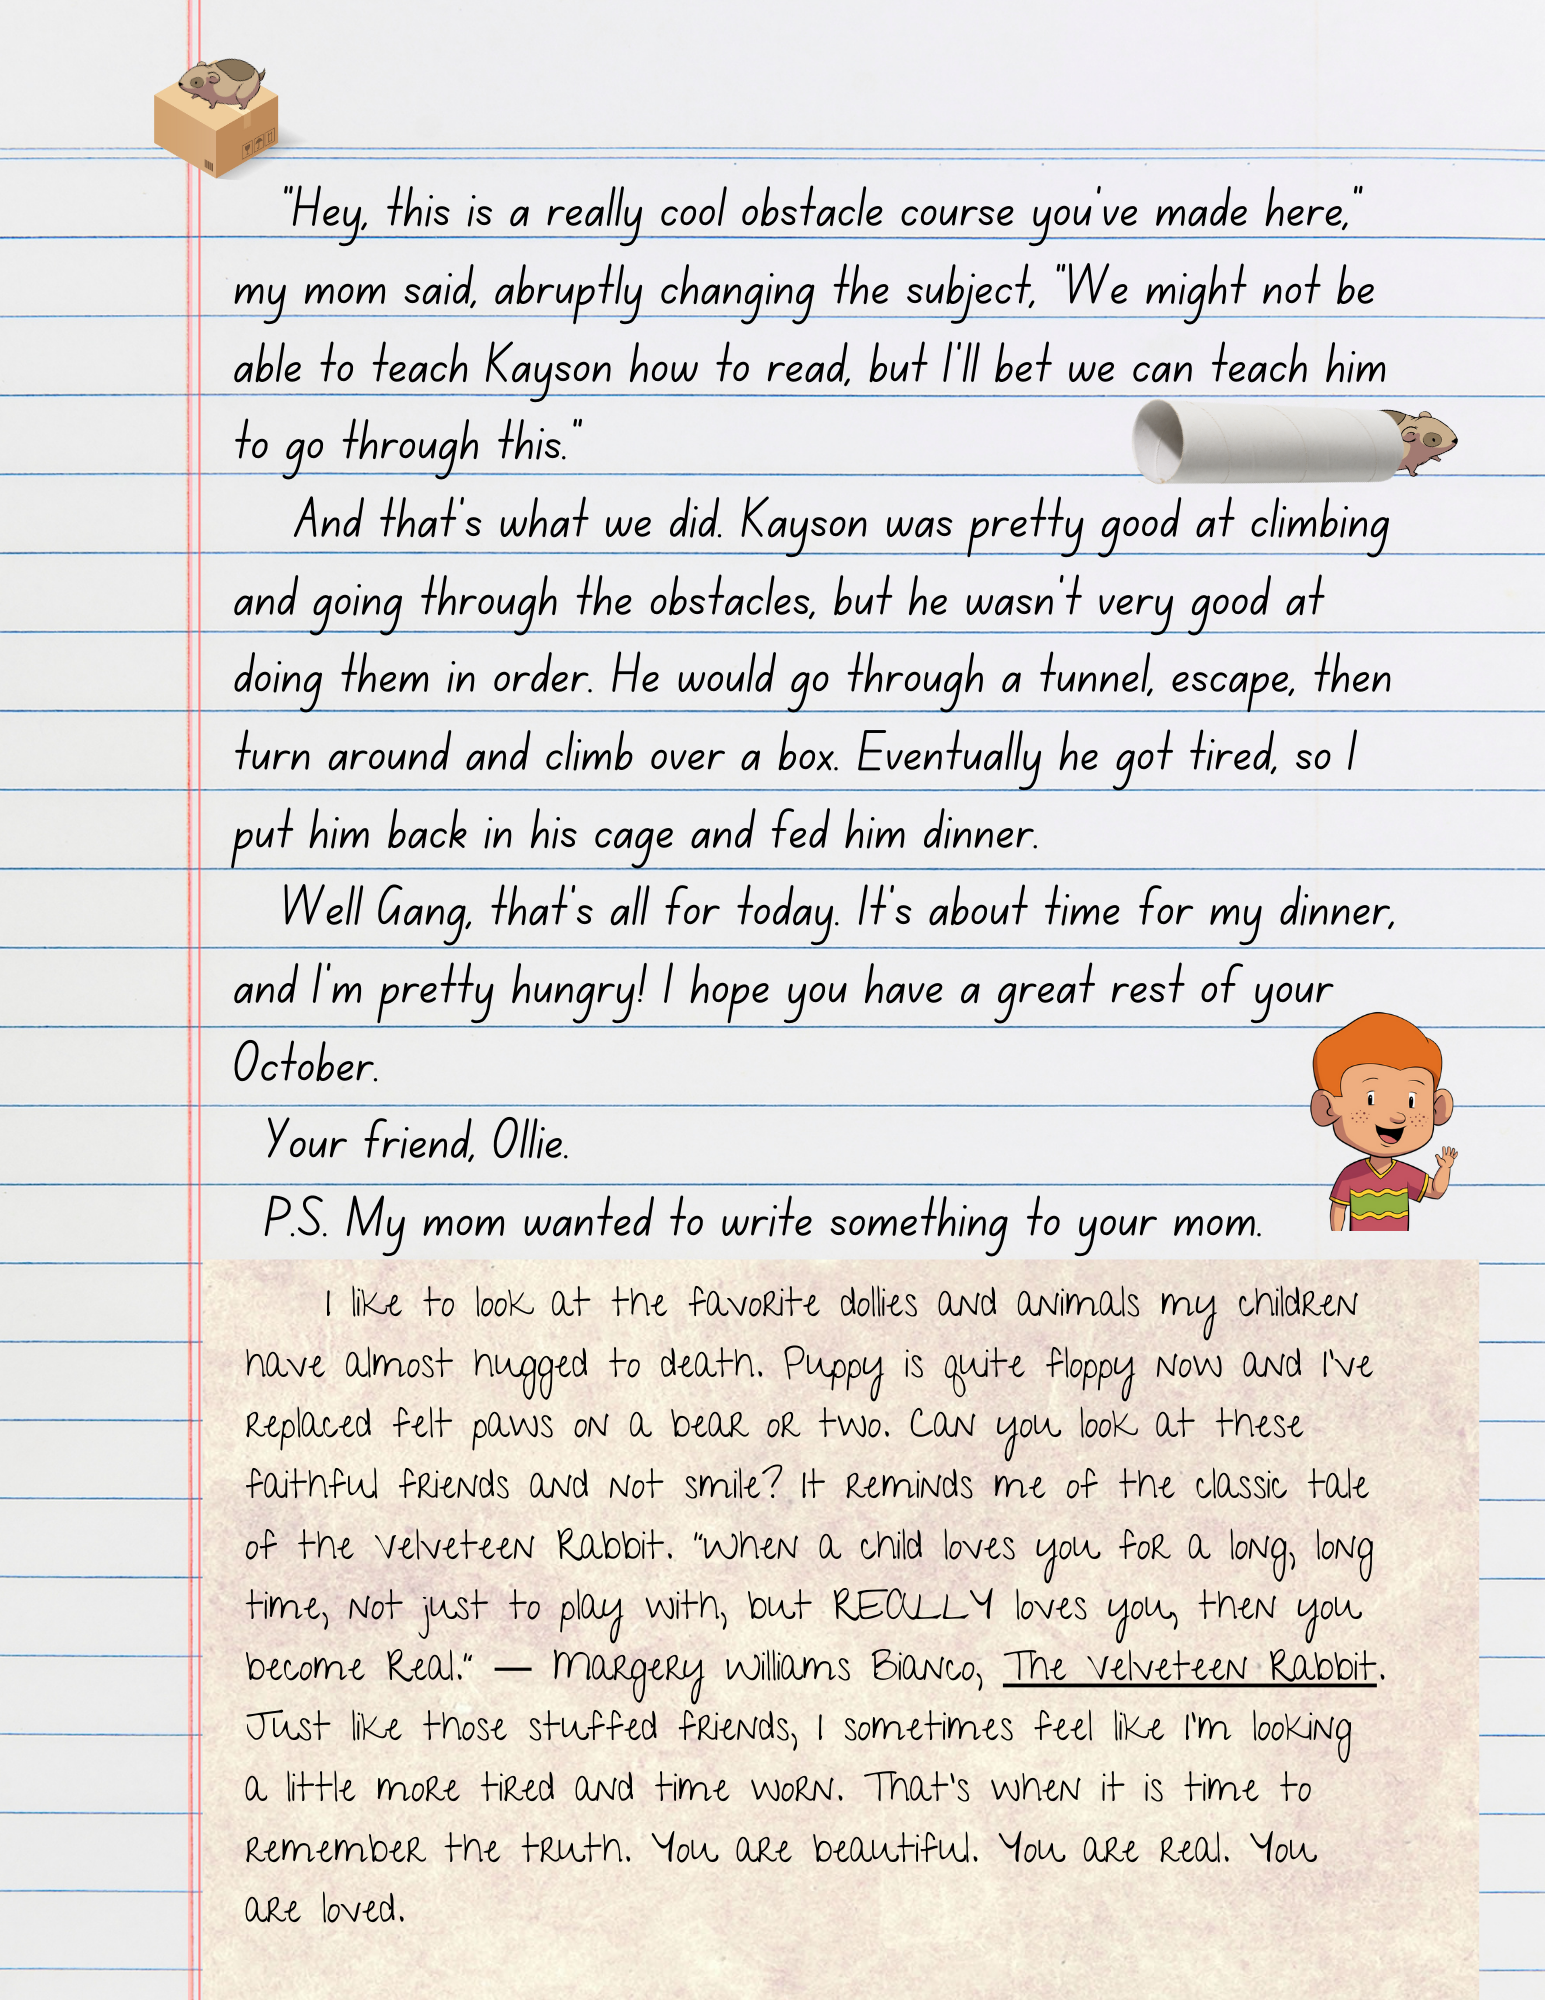 "Hey, this is a really cool obstacle course you've made here,"
my mom said, abruptly changing the subject, "We might not be
able to teach Kayson how to read, but I'll bet we can teach him
to go through this."
And that's what we did. Kayson was pretty good at climbing
and going through the obstacles, but he wasn't very good at
doing them in order. He would go through a tunnel, escape, then
turn around and climb over a box. Eventually he got tired, so I
put him back in his cage and fed him dinner.
Well Gang, that's all for today. It's about time for my dinner,
and I'm pretty hungry! I hope you have a great rest of your
October.
Your friend, Ollie.
P.S. My mom wanted to write something to your mom.
I like to look at the favorite dollies and animals my children
have almost hugged to death. Puppy is quite floppy now and I've
replaced felt paws on a bear or two. Can you look at these
faithful friends and not smile? It reminds me of the classic tale
of the Velveteen Rabbit. "When a child loves you for a long, long
time, not just to play with, but REALLY loves you, then you
become Real." — Margery Williams Bianco, The Velveteen Rabbit.
Just like those stuffed friends, I sometimes feel like I'm looking
a little more tired and time worn. That's when it is time to
remember the truth. You are beautiful. You are real. You
are loved.